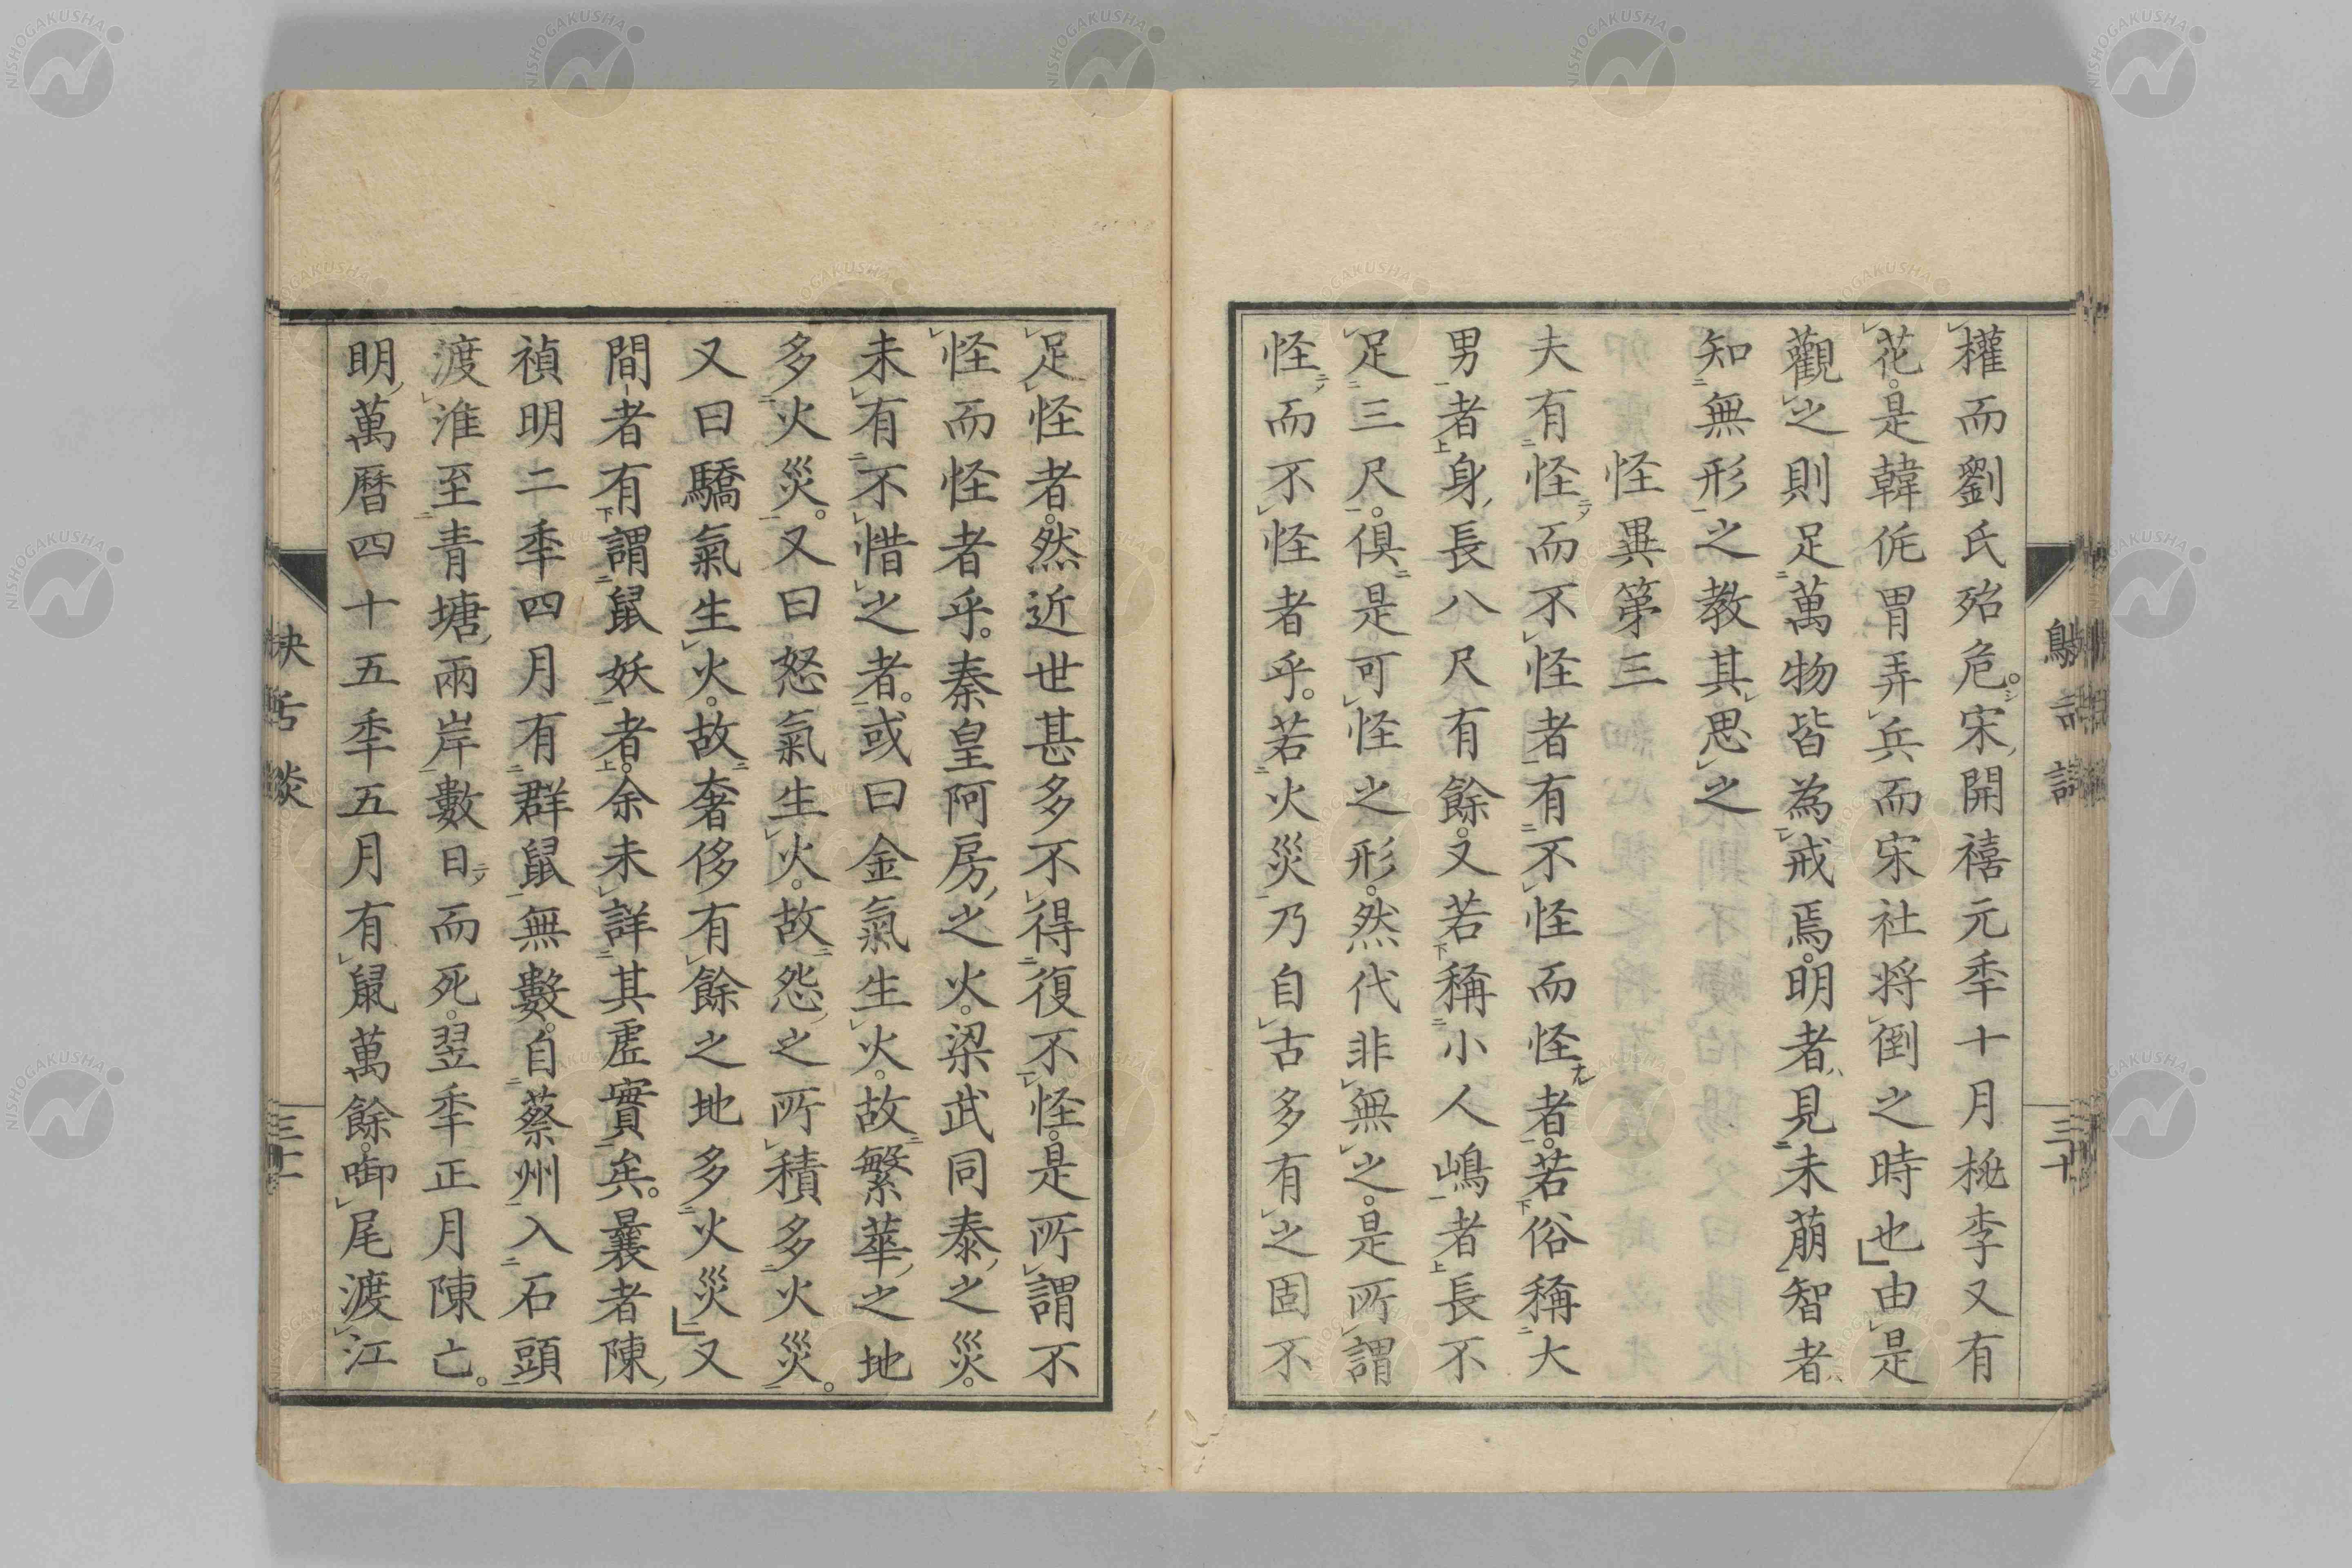 權而劉氏殆危。宋開禧元秊十月桃李又有
花。是韓侂胄弄兵而宋社將倒之時也」由是
觀之則足萬物皆為戒焉。明者見未萠智者
知無形之教其思之
怪異第三
夫有怪而不怪者有不怪而怪者。若俗稱大
男者身長八尺有餘。又若稱小人嶋者長不
足三尺。倶是可怪之形。然代非無之。是所謂
怪而不怪者乎。若火災乃自古多有之固不
三十
足怪者。然近世甚多不得復不怪。是所謂不
怪而怪者乎。秦皇阿房之火。梁武同泰之災。
未有不惜之者。或曰金氣生火。故繁華之地
多火災。又曰怒氣生火。故怨之所積多火災。
又曰驕氣生火。故奢侈有餘之地多火災」又
間者有謂鼠妖者。余未詳其虛實矣。曩者陳
禎明二秊四月有群鼠無數。自蔡州入石頭
渡淮至青塘兩岸數日而死。翌秊正月陳亡。
明萬曆四十五秊五月有鼠萬餘。啣尾渡江
NISHOGAKUSHA